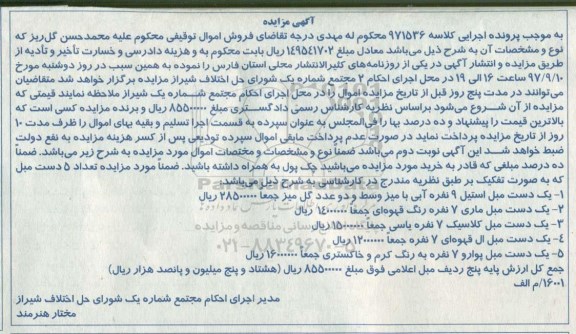 آگهی مزایده
به موجب پرونده اجرایی کلاسه ۹۷۱۵۳۶ محکوم له مهدی درجه تقاضای فروش اموال توقیفی محکوم علیه محمدحسن گل‌ریز که
نوع و مشخصات آن به شرح ذیل می‌باشد معادل مبلغ ۱۴۹۵۴۱۷۰۲ ریال بابت محکوم به و هزینه دادرسی و خسارت تأخیر و تأدیه از
طریق مزایده و انتشار آگهی در یکی از روزنامه‌های کثیرالانتشار محلی استان فارس را نموده به همین سبب در روز دوشنبه مورخ
۹۷/۹/۱۰ ساعت ۱۶ الی ۱۹ در محل اجرای احکام ۲ مجتمع شماره یک شورای حل اختلاف شیراز مزایده برگزار خواهد شد متقاضیان
می‌توانند در مدت پنج روز قبل از تاریخ مزایده اموال را در محل اجرای احکام مجتمع شماره یک شیراز ملاحظه نمایند قیمتی که
مزایده از آن شروع می‌شود براساس نظریه کارشناس رسمی دادگستری مبلغ ۸۵۵۰۰۰۰۰ ریال و برنده مزایده کسی است که
بالاترین قیمت را پیشنهاد و ده درصد بها را فی‌المجلس به عنوان سپرده به قسمت اجرا تسلیم و بقیه بهای اموال را ظرف مدت ۱۰
روز از تاریخ مزایده پرداخت نماید در صورت عدم پرداخت مابقی اموال سپرده تودیعی پس از کسر هزینه مزایده به نفع دولت
ضبط خواهد شد این آگهی نوبت دوم می‌باشد ضمناً نوع و مشخصات و مختصات اموال مورد مزایده به شرح زیر می‌باشد. ضمناً
ده درصد مبلغی که قادر به خرید مورد مزایده می‌باشید چک پول به همراه داشته باشید. ضمناً مورد مزایده تعداد ۵ دست مبل
که به صورت تفکیک بر طبق نظریه مندرج در کارشناسی به شرح ذیل می‌باشد
۱- یک دست مبل استیل ۹ نفره آبی با میز وسط و دو عدد گل میز جمعاً ۲۸۵۰۰۰۰۰ ریال
۲- یک دست مبل ماری ۷ نفره رنگ قهوه‌ای جمعاً ۱۴۰۰۰۰۰۰ ریال
۳- یک دست مبل کلاسیک ۷ نفره یاسی جمعاً ۱۵۰۰۰۰۰۰ ریال
۴- یک دست مبل ال قهوه‌ای ۷ نفره جمعاً ۱۲۰۰۰۰۰۰ ریال
۵- یک دست مبل پوارو ۷ نفره به رنگ کرم و خاکستری جمعاً ۱۶۰۰۰۰۰۰ ریال
جمع کل ارزش پایه پنج ردیف مبل اعلامی فوق مبلغ ۸۵۵۰۰۰۰۰ ریال (هشتاد و پنج میلیون و پانصد هزار ریال)
۱۶۰۰۱/م الف
مدیر اجرای احکام مجتمع شماره یک شورای حل اختلاف شیراز
مختار هنرمند
ParsNamadData
۰۲۱-۸۸۳۴۹۶۷۰-۵